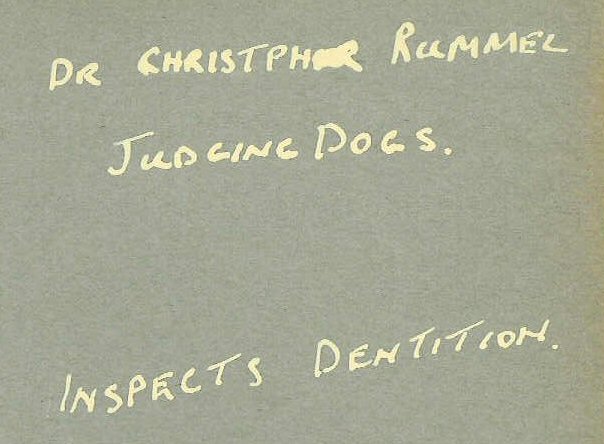 DR CHRISTPHER RUMMEL
JUDGING DOGS.
INSPECTS DENTITION.